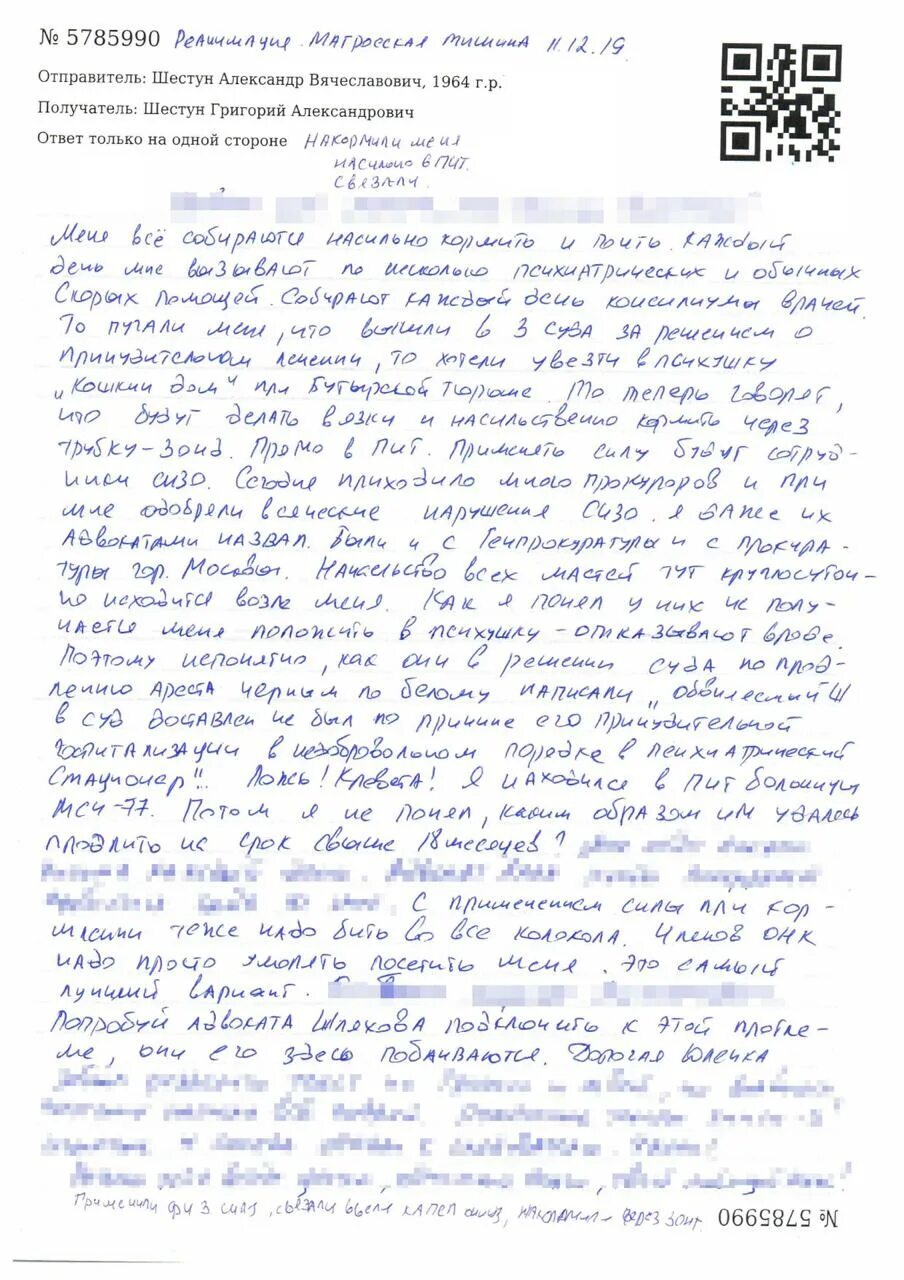 № 5785990 Реанимация. Матросская тишина 11.12.19
Отправитель: Шестун Александр Вячеславович, 1964 г.р.
Получатель: Шестун Григорий Александрович
Ответ только на одной стороне Накормили меня
насильно в ПИТ.
Связали.
Меня всё собираются насильно кормить и поить. Каждый
день мне вызывают по несколько психиатрических и обычных
Скорых помощей. Собирают каждый день консилиумы врачей.
То пугали меня, что вышли в 3 суда за решением о
принудительном лечении, то хотели увезти в психушку
"Кошкин дом" при Бутырской тюрьме. То теперь говорят,
что будут делать вязки и насильственно кормить через
трубку-зонд. Прямо в ПИТ. Применять силу будут сотруд-
ники сизо. Сегодня приходило много прокуроров и при
мне одобрели всяческие нарушения Сизо. Я даже их
адвокатами назвал. Были и с Генпрокуратуры и с прокура-
туры гор. Москвы. Начальство всех мастей тут круглосуточ-
но находится возле меня. Как я понял у них не полу-
чается меня положить в психушку - отказывают вроде.
Поэтому непонятно, как они в решении суда по прод-
лению ареста черным по белому написали "обвиняемый Ш
в суд доставлен не был по причине его принудительной
госпитализации в недобровольном порядке в психиатрический
Стационар"!. Ложь! Клевета! Я находился в ПИТ больницы
МСЧ-77. Потом я не понял, каким образом им удалось
продлить на срок свыше 18 месяцев?
С применением силы при кор-
млении тоже надо бить во все колокола. Членов ОНК
надо просто умолять посетить меня. Это самый
лучший вариант.
Попробуй адвоката Шляхова подключить к этой пробле-
ме, они его здесь побаиваются. Дорогая Юлечка
Применили физ силу, связали ввели капельницу, накормили через зонт.
№ 5785990